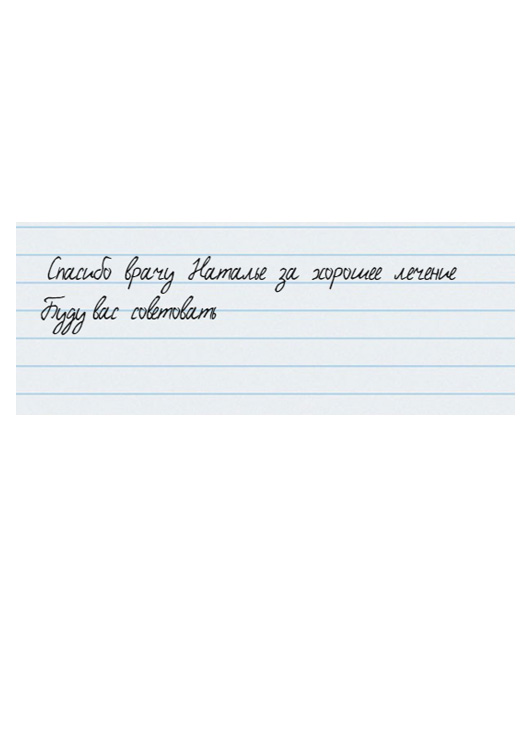 Спасибо врачу Наталье за хорошее лечение
Буду вас советовать